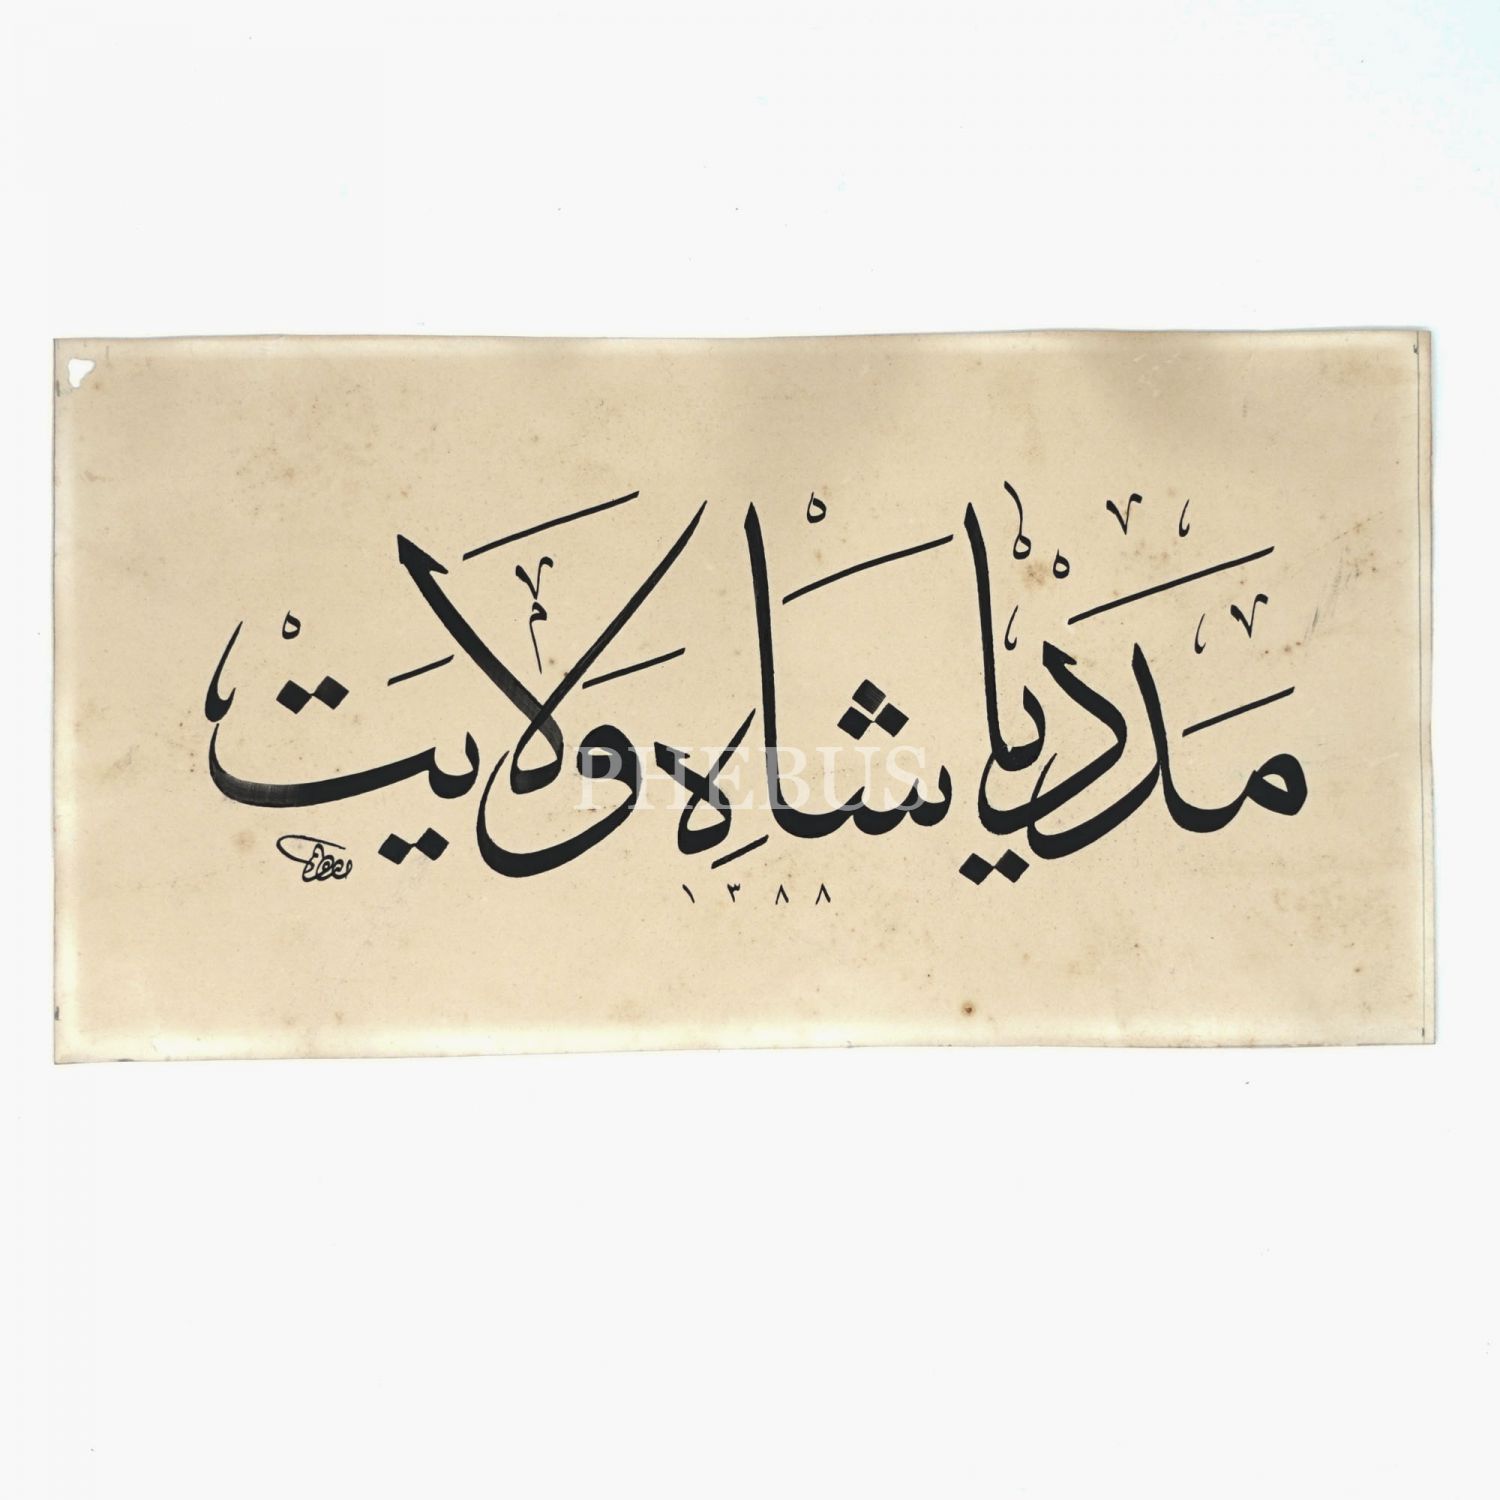 مَدَدْ يَا شَاهِ وَلَايَتْ
١٣٨٨
PHEBUS